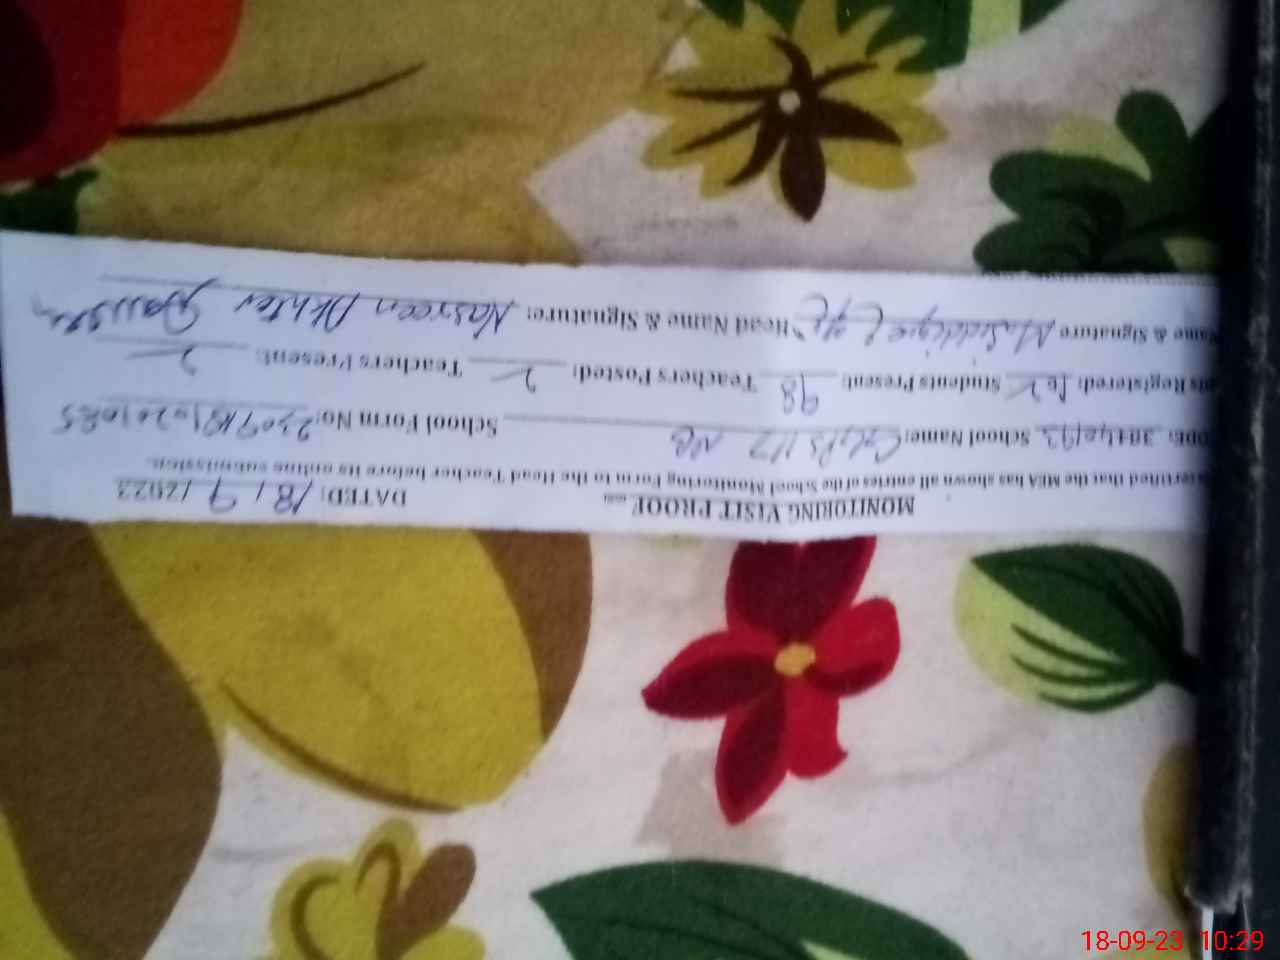 MONITORING VISIT PROOF DATED: 18/9/2023
certified that the MEA has shown all entries of the School Monitoring Form to the Head Teacher before its online submission.
School Name: 117 NB School Form No:
Registered: Students Present: 98 Teachers Posted: 2 Teachers Present: 2
Name & Signature M. Siddique Head Name & Signature: Nasreen Akhter
18-09-23 10:29